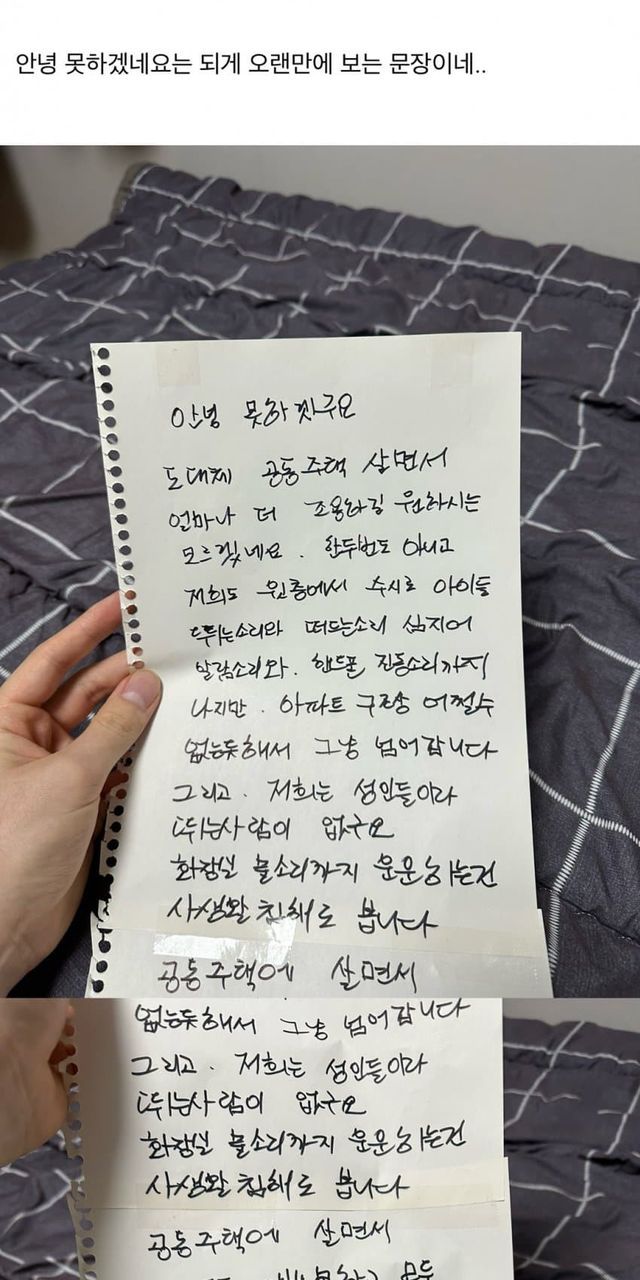 안녕 못하겠네요는 되게 오랜만에 보는 문장이네..
안녕 못하겠구요
도대체 공동주택 살면서
얼마나 더 조용하길 원하시는
모르겠네요. 한두번도 아니고
저희도 윗층에서 수시로 아이들
뛰는소리와 떠드는소리 심지어
알람소리와. 핸드폰 진동소리까지
나지만. 아파트 구조상 어쩔수
없는듯해서 그냥 넘어갑니다
그리고. 저희는 성인들이라
뛰는사람이 없구요
화장실 물소리까지 운운하는건
사생활 침해로 봅니다
공동주택에 살면서
없는듯해서 그냥 넘어갑니다
그리고. 저희는 성인들이라
뛰는사람이 없구요
화장실 물소리까지 운운하는건
사생활 침해로 봅니다
공동주택에 살면서